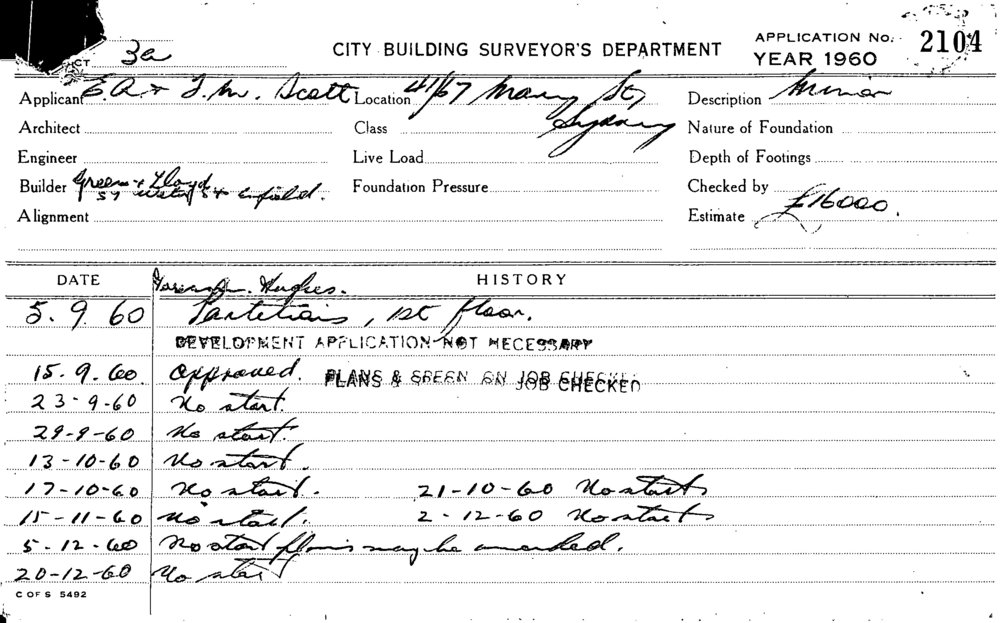 ACT 3a
CITY BUILDING SURVEYOR'S DEPARTMENT
APPLICATION No. 2104
YEAR 1960
Applicant E.A. & J.M. Scott Location 41/67 Mary St, Sydney Description Minor
Architect Class Nature of Foundation
Engineer Live Load Depth of Footings
Builder Green & Lloyd Foundation Pressure Checked by
57 Water St Enfield.
Alignment Estimate £16000.
DATE HISTORY
Hughes.
5. 9. 60 Partitions, 1st floor.
DEVELOPMENT APPLICATION NOT NECESSARY
15. 9. 60. Approved. PLANS & GREEN ON JOB CHECKED
JOB CHECKED
23-9-60 No start.
29-9-60 No start.
13-10-60 No start.
17-10-60 No start. 21-10-60 No start
15-11-60 No start. 2-12-60 No start
5-12-60 No start plans may be amended.
20-12-60 No start
C OF S 5492